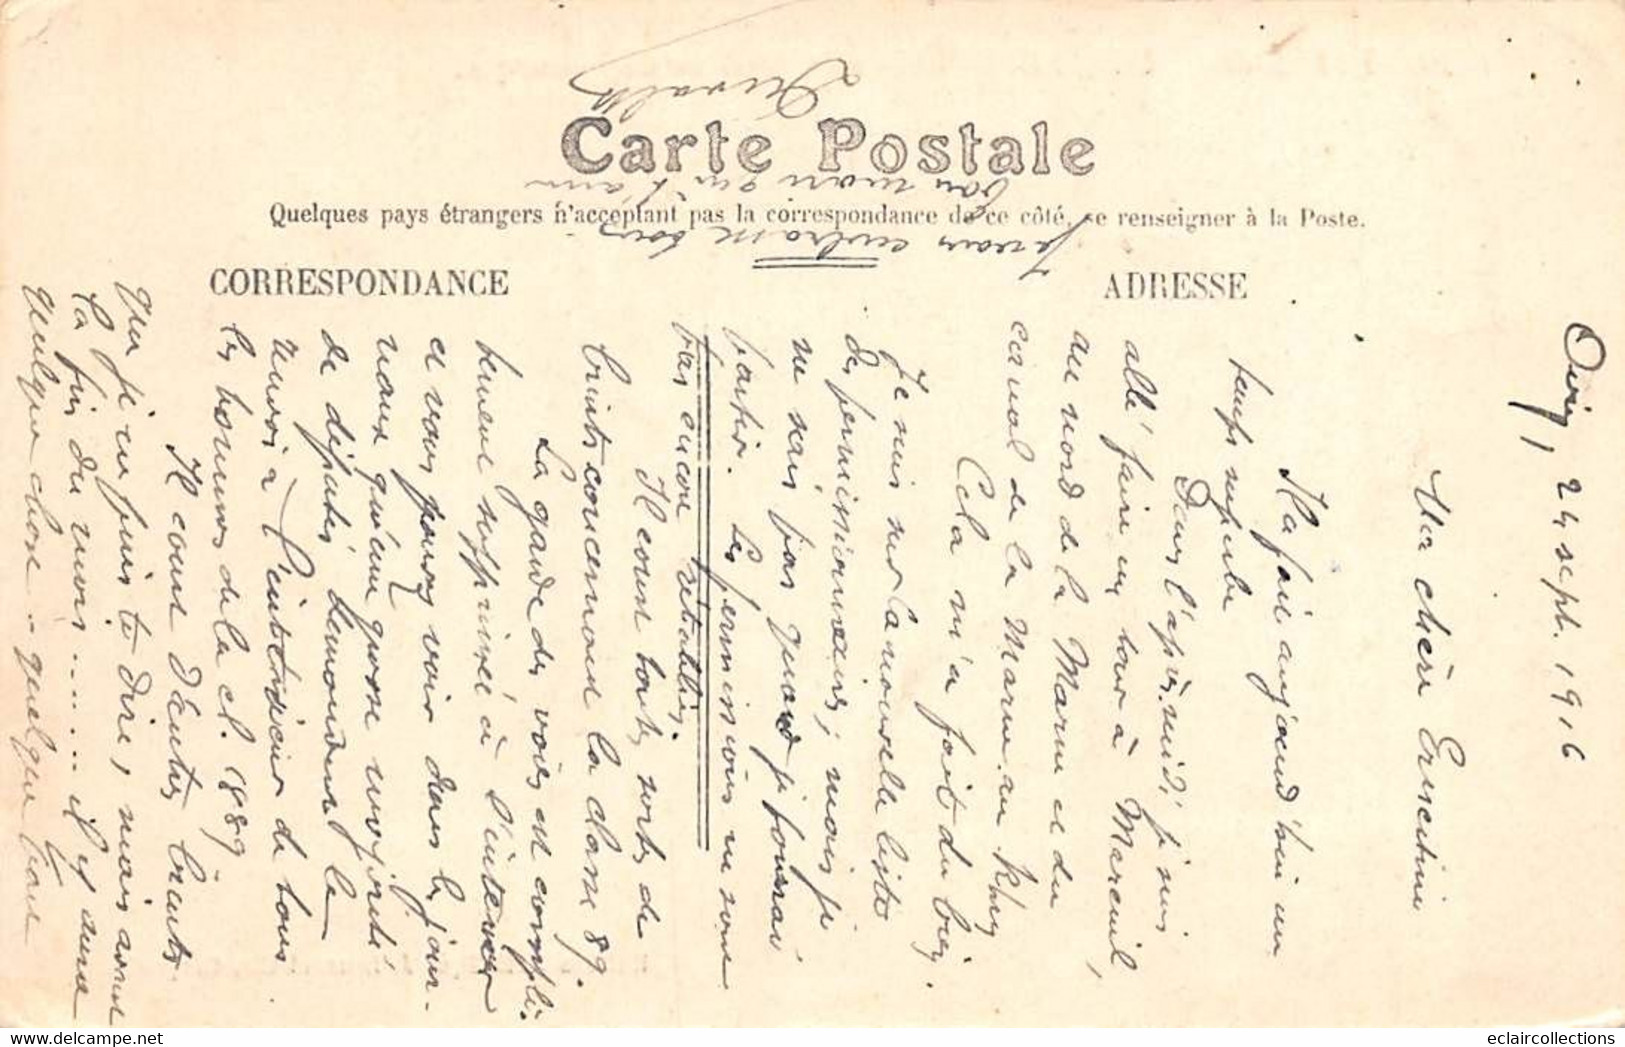 Carte Postale
Quelques pays étrangers n'acceptant pas la correspondance de ce côté, se renseigner à la Poste.
CORRESPONDANCE
ADRESSE
24 sept. 1916
Ma chère Ernestine
Il a fait aujourd'hui un
temps superbe
Dans l'après-midi je suis
allé faire un tour à Mareuil,
au nord de la Marne et du
canal de la Marne au Rhin
Cela m'a fait du bien.
Je suis sur la nouvelle liste
de permissionnaires; mais je
ne sais pas quand je pourrai
partir. Les permissions ne sont
pas encore rétablies.
Il court toutes sortes de
bruits concernant la classe 89.
La garde des voies est complè-
tement supprimée à l'intérieur
et vous pouvez voir dans les jour-
naux qu'une grosse majorité
de députés demandent le
renvoi à l'intérieur de tous
les hommes de la cl. 1889
Il court d'autres bruits
que je ne puis te dire, mais avant
la fin du mois ...... il y aura
quelque chose .. quelque part
Je vous embrasse tous
ton mari qui t'aime
eclaircollections